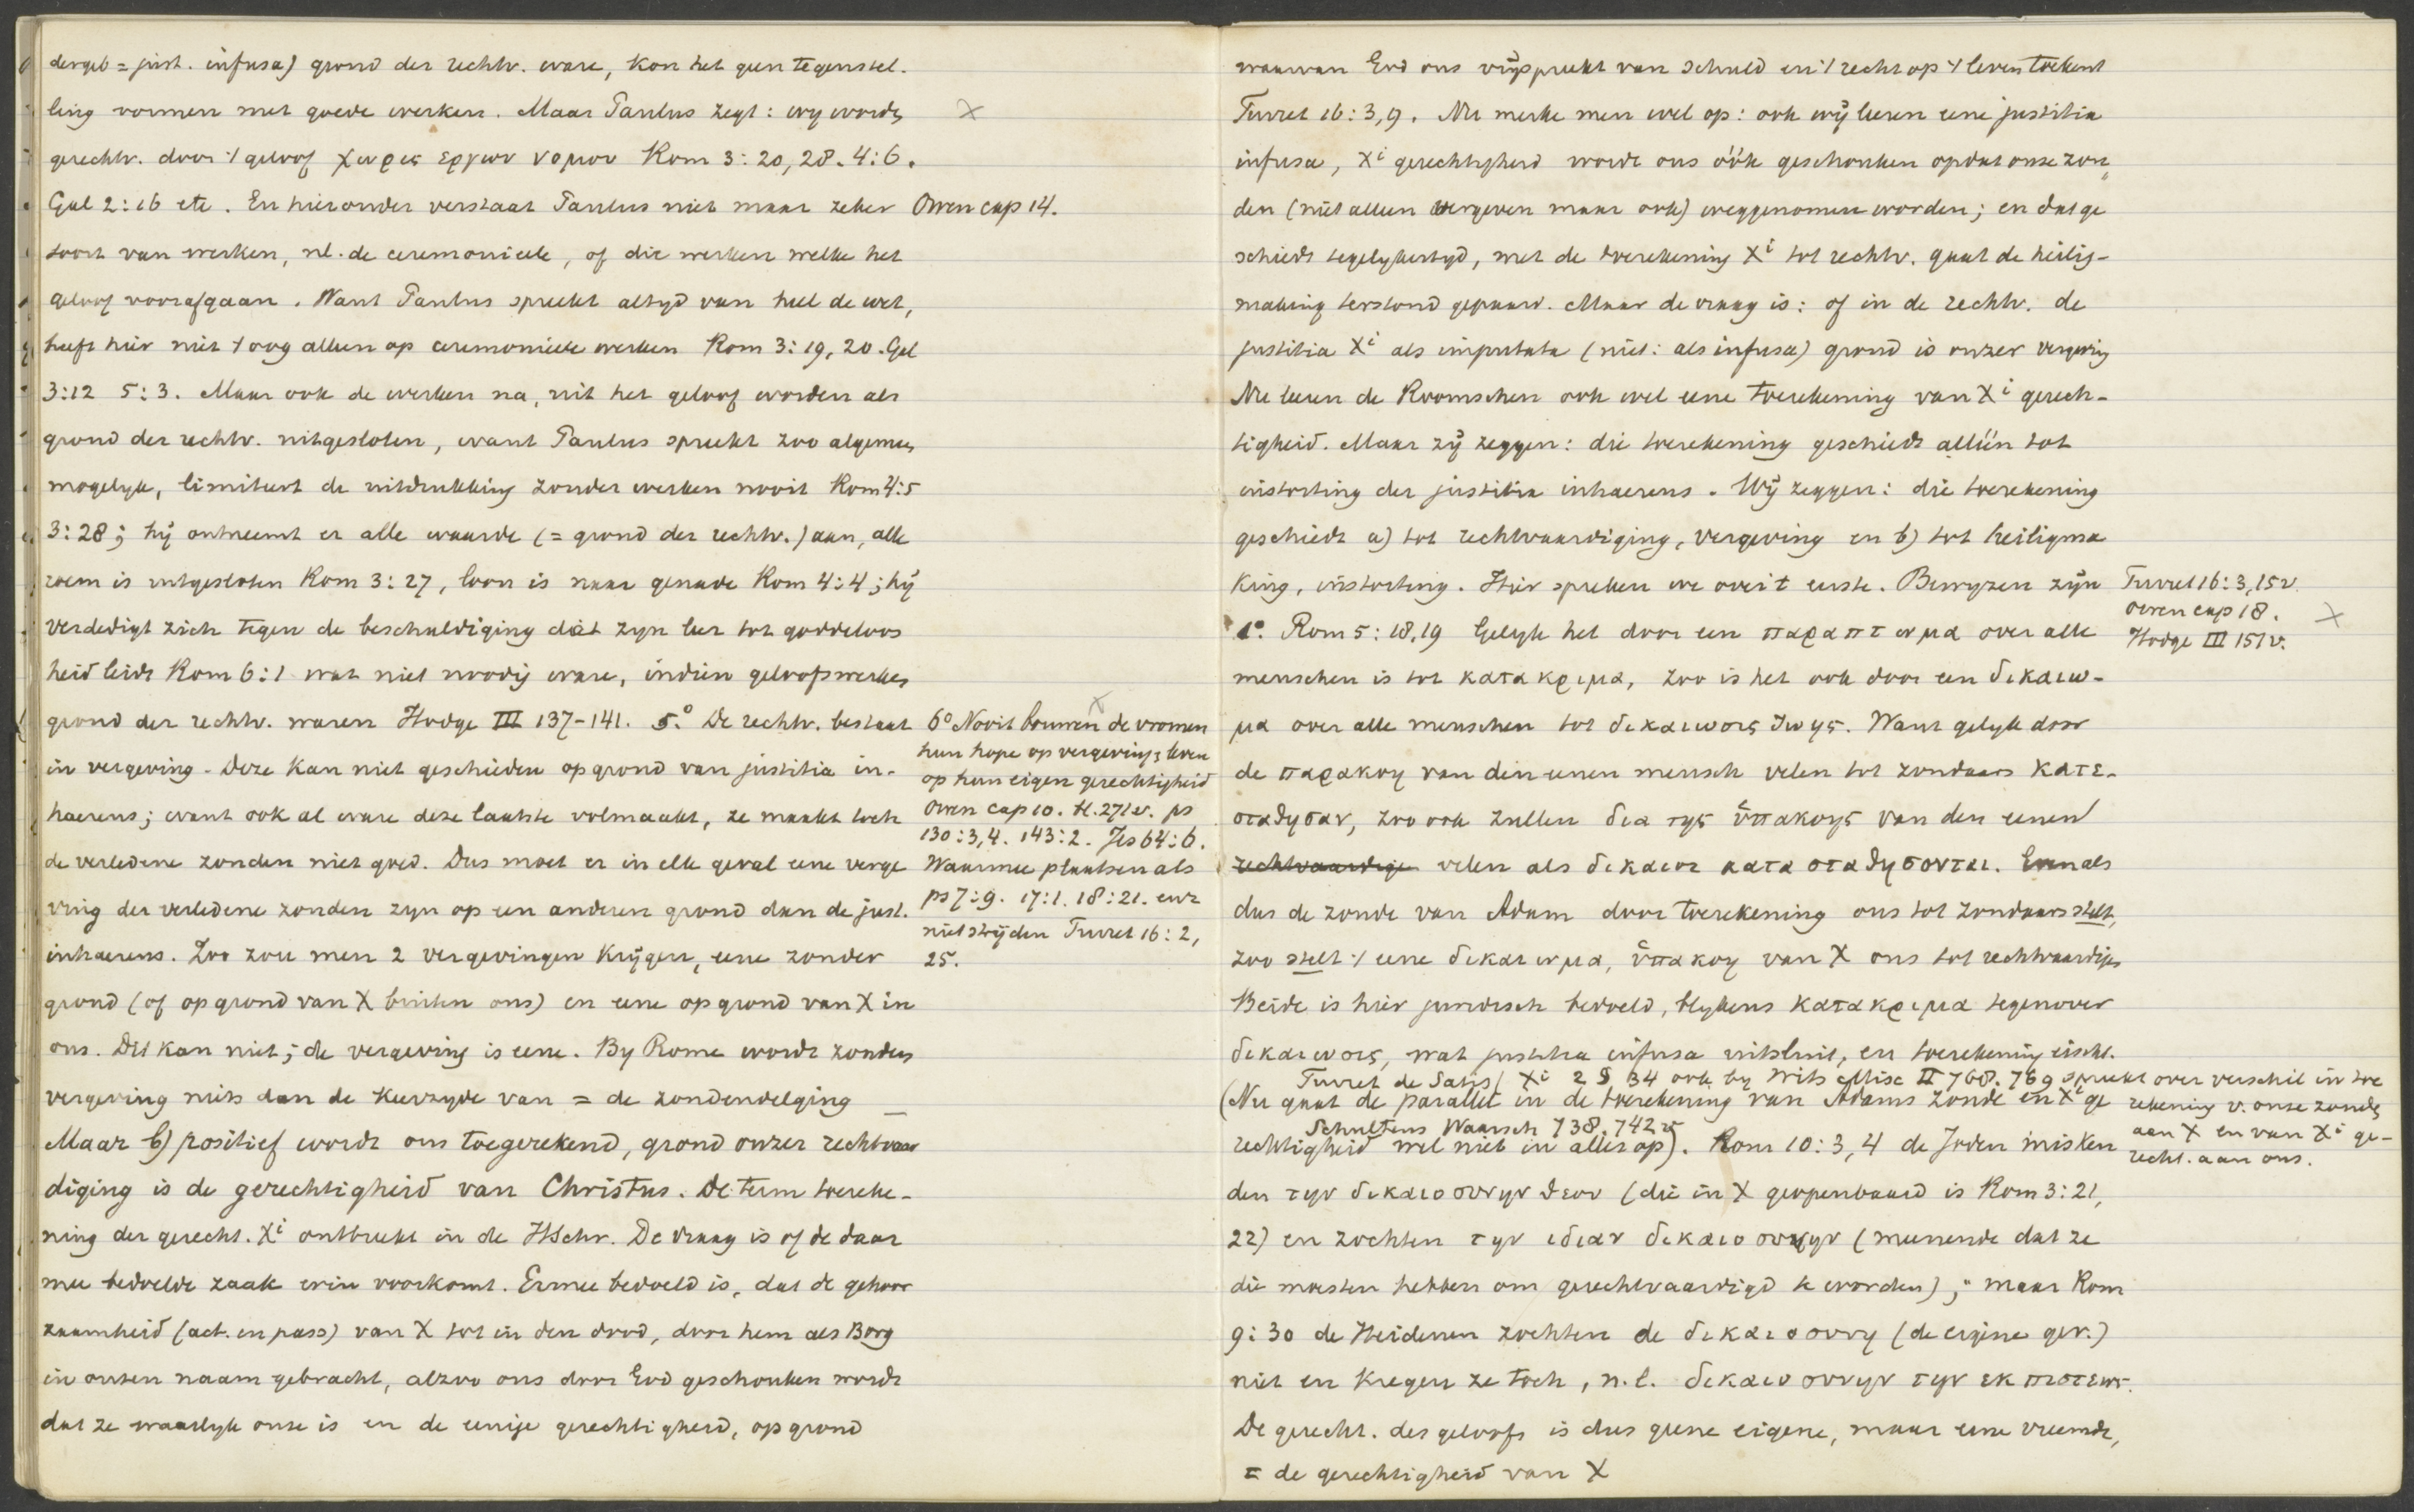 dergel = just. infusa) grond der rechtv. ware, kon het geen tegenstel.
ling vormen met goede werken. Maar Paulus zegt: wy worden
gerechtv. door 't geloof χωρις εργων νομου Rom 3:20, 28. 4:6.
Gal 2:16 etc. En hieronder verstaat Paulus niet maar zeker
soort van werken, nl. de ceremonieele, of die werken welke het
geloof voorafgaan. Want Paulus spreekt altyd van heel de wet,
heeft hier niet 't oog alleen op ceremonieele werken Rom 3:19, 20. Gal
3:12 5:3. Maar ook de werken na, uit het geloof worden als
grond der rechtv. uitgesloten, want Paulus spreekt zoo algemeen
mogelyk, limiteert de uitdrukking zonder werken nooit Rom 4:5
3:28; hij ontneemt er alle waarde (= grond der rechtv.) aan, alle
roem is uitgesloten Rom 3:27, loon is naar genade Rom 4:4; hij
verdedigt zich tegen de beschuldiging dat zyn leer tot goddeloos
heid leidt Rom 6:1 wat niet noodig ware, indien geloofswerken
grond der rechtv. waren Hodge III 137-141. 5.° De rechtv. bestaat
in vergeving. Deze kan niet geschieden op grond van justitia in-
haerens; want ook al ware deze laatste volmaakt, ze maakt toch
de verledene zonden niet goed. Dus moet er in elk geval eene verge
ving der verledene zonden zyn op een anderen grond dan de just.
inhaerens. Zoo zou men 2 vergevingen krijgen, eene zonder
grond (of op grond van X buiten ons) en eene op grond van X in
ons. Dit kan niet; de vergeving is eene. By Rome wordt zonden
vergeving niets dan de keerzyde van = de zondendelging
Maar b) positief wordt ons toegerekend, grond onzer rechtvaar
diging is de gerechtigheid van Christus. De term toereke-
ning der gerecht. Xi ontbreekt in de HSchr. De vraag is of de daar
mee bedoelde zaak erin voorkomt. Ermee bedoeld is, dat de gehoor
zaamheid (act. en pass) van X tot in den dood, door hem als Borg
in onzen naam gebracht, alzoo ons door God geschonken wordt
dat ze waarlyk onze is en de eenige gerechtigheid, op grond
X
Owen cap 14.
6° Nooit bouwen de vromen
hun hope op vergeving & leven
op hun eigen gerechtigheid
Owen cap 10. bl. 271v. ps
130:3,4. 143:2. Jes 64:6.
Waarmee plaatsen als
ps 7:9. 17:1. 18:21. enz
niet strijden Turret 16:2,
25.
waarvan God ons vrijspreekt van schuld en 't recht op 't leven toekent
Turret 16:3,9. Nu merke men wel op: ook wij leeren eene justitia
infusa, Xi gerechtigheid wordt ons óók geschonken opdat onze zon
den (niet alleen vergeven maar ook) weggenomen worden; en dat ge
schiedt tegelykertyd, met de toerekening Xi tot rechtv. gaat de heilig-
making terstond gepaard. Maar de vraag is: of in de rechtv. de
justitia Xi als imputata (niet: als infusa) grond is onzer vergeving
Nu leeren de Roomschen ook wel eene toerekening van Xi gerech-
tigheid. Maar zij zeggen: die toerekening geschiedt alléén tot
instorting der justitia inhaerens. Wij zeggen: die toerekening
geschiedt a) tot rechtvaardiging, vergeving en b) tot heiligma
king, instorting. Hier spreken we over 't eerste. Bewyzen zijn
1° Rom 5:18,19 Gelyk het door een παραπτωμα over alle
menschen is tot κατακριμα, zoo is het ook door een δικαιω-
μα over alle menschen tot δικαιωσις ζωης. Want gelyk door
de παρακοη van dien eenen mensch velen tot zondaars κατε-
σταθησαν, zoo ook zullen δια της ὑπακοης van den eenen
rechtvaardige velen als δικαιοι κατασταθησονται. Evenals
dus de zonde van Adam door toerekening ons tot zondaars stelt,
zoo stelt 't eene δικαιωμα, ὑπακοη van X ons tot rechtvaardigen
Beide is hier juridisch bedoeld, blykens κατακριμα tegenover
δικαιωσις, wat justitia infusa uitsluit, en toerekening eischt.
Turret de Satisf Xi 2 § 34 ook by Wits Misc II 768. 769 spreekt over verschil in toe
(Nu gaat de parallel in de toerekening van Adams zonde en Xi ge
Schultens Waarsch 738. 742v
rechtigheid wel niet in alles op). Rom 10:3,4 de Joden misken
den την δικαιοσυνην θεου (die in X geopenbaard is Rom 3:21,
22) en zochten την ιδιαν δικαιοσυνην (meenende dat ze
die moesten hebben om gerechtvaardigd te worden); maar Rom
9:30 de Heidenen zochten de δικαιοσυνη (de eigene ger.)
niet en kregen ze toch, n.l. δικαιοσυνην την εκ πιστεως.
De gerecht. des geloofs is dus geene eigene, maar eene vreemde,
= de gerechtigheid van X
Turret 16:3,15v.
Owen cap 18.
Hodge III 151v.
X
rekening v. onze zonden
aan X en van Xi ge-
recht. aan ons.